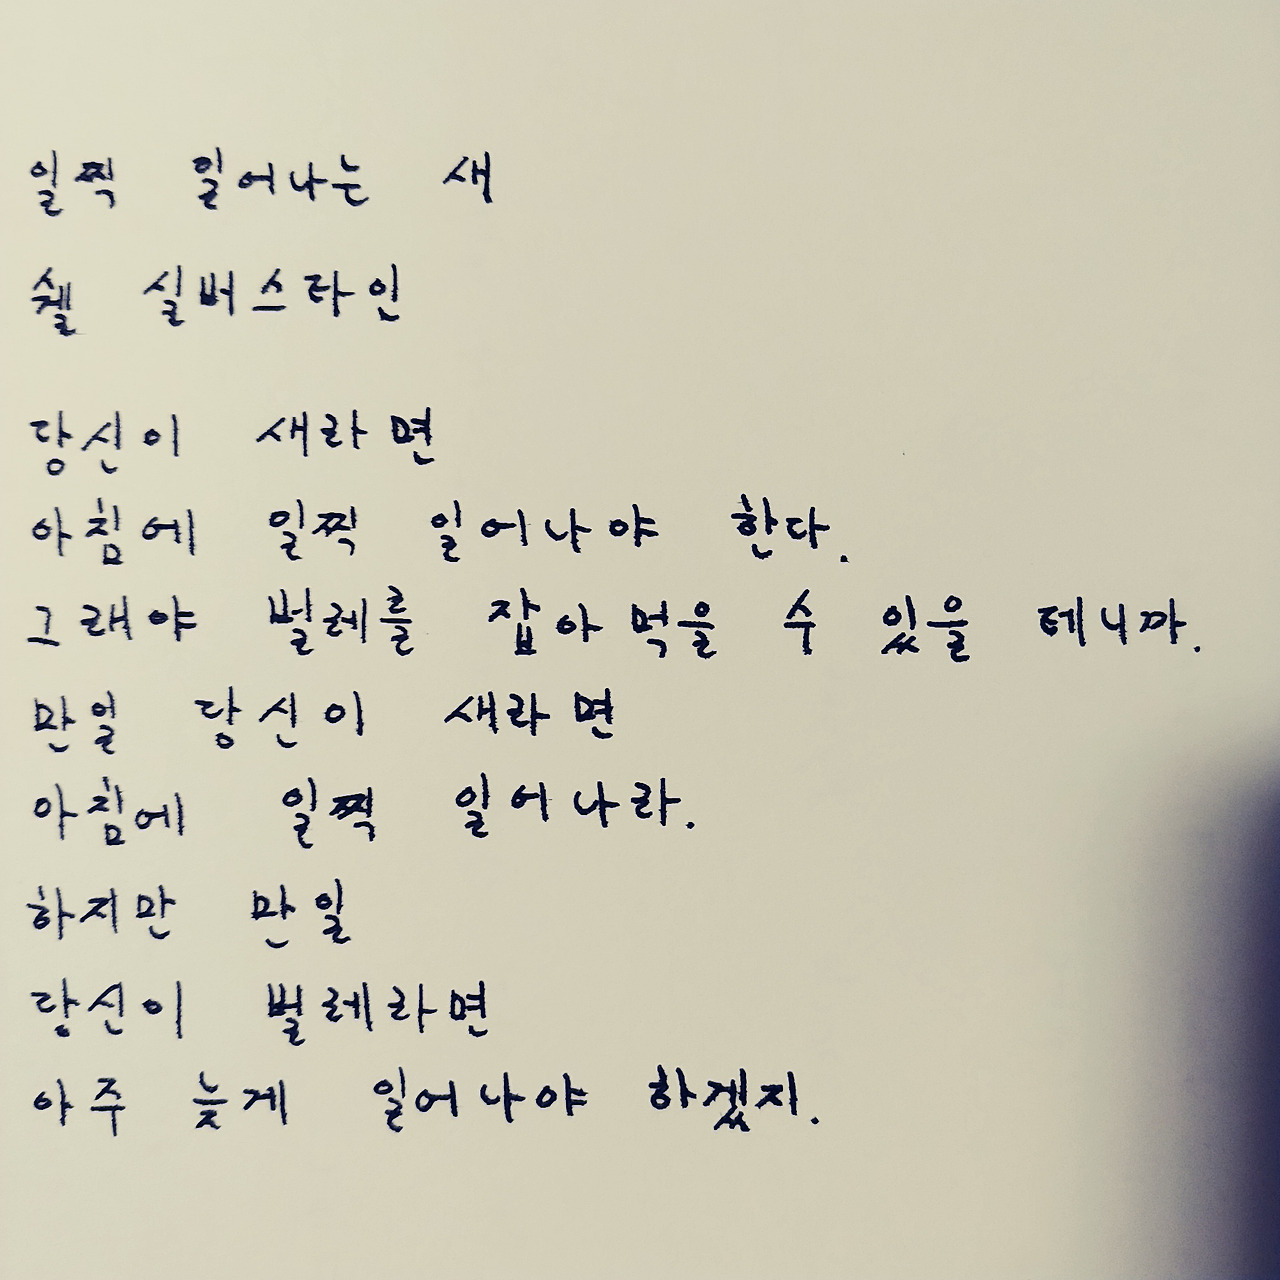 일찍 일어나는 새
쉘 실버스타인
당신이 새라면
아침에 일찍 일어나야 한다.
그래야 벌레를 잡아 먹을 수 있을 테니까.
만일 당신이 새라면
아침에 일찍 일어나라.
하지만 만일
당신이 벌레라면
아주 늦게 일어나야 하겠지.